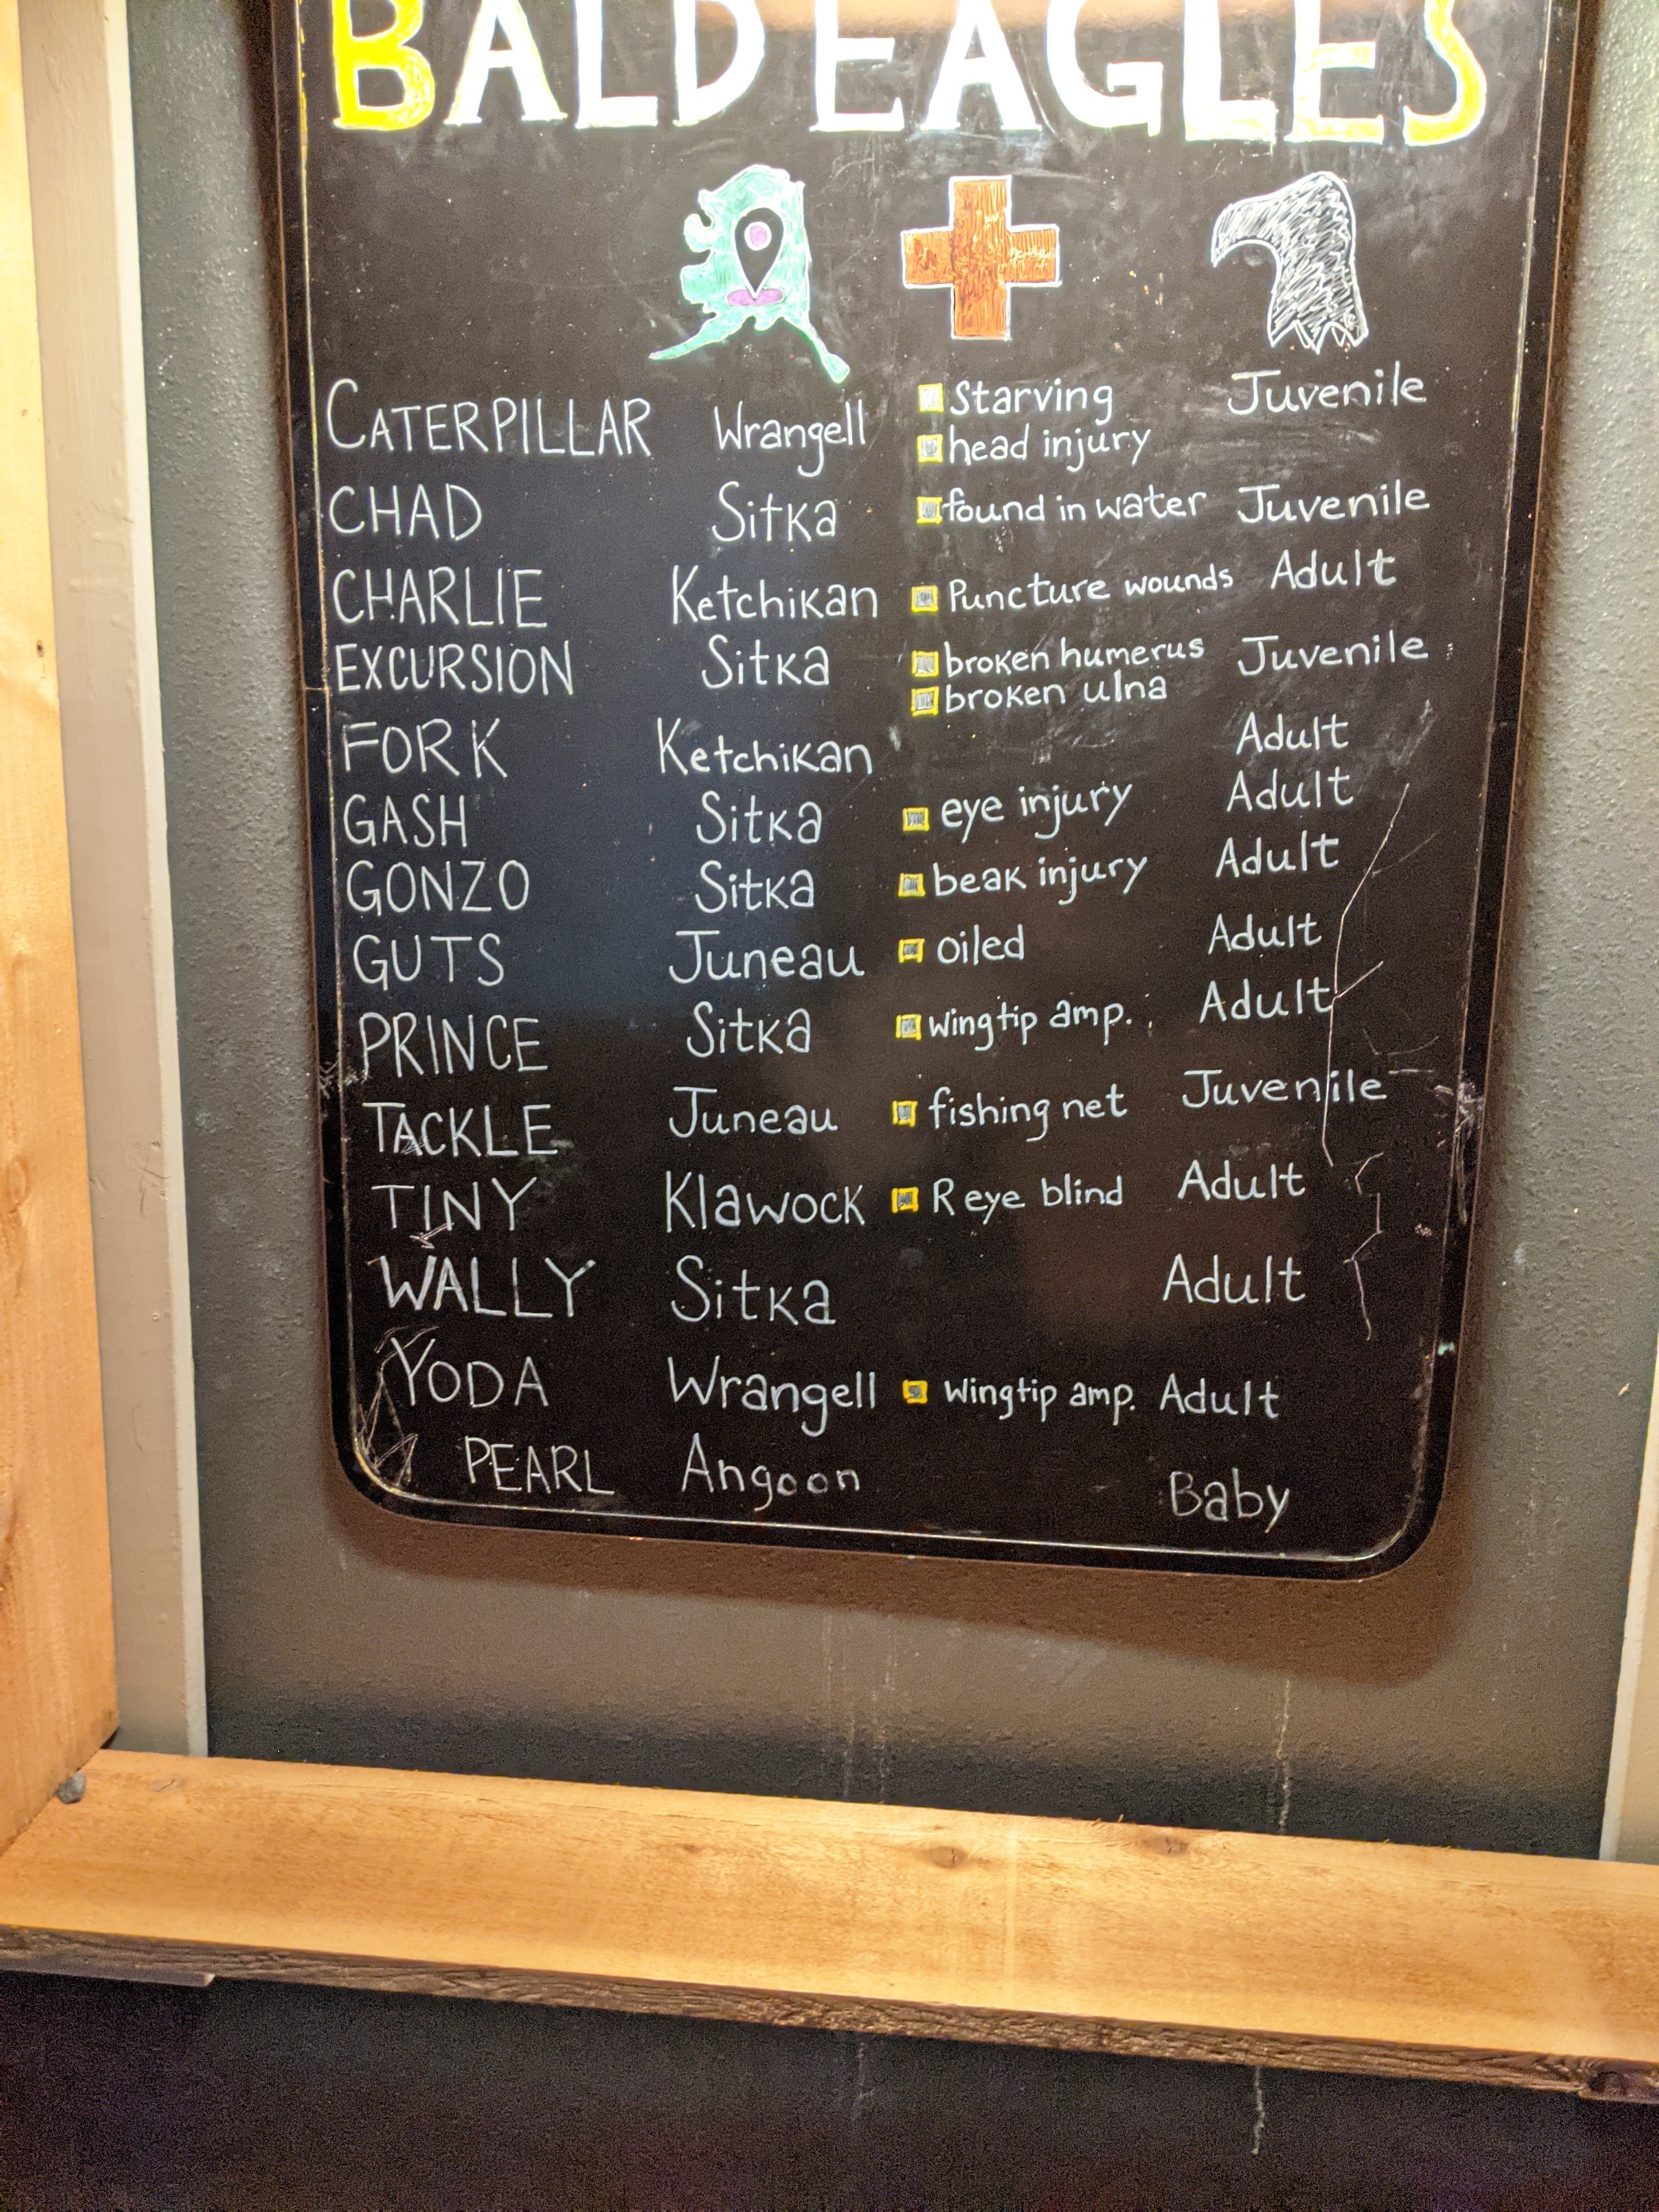 BALD EAGLES
CATERPILLAR Wrangell Starving Juvenile
head injury
CHAD Sitka found in water Juvenile
CHARLIE Ketchikan Puncture wounds Adult
EXCURSION Sitka broken humerus Juvenile
broken ulna
FORK Ketchikan Adult
GASH Sitka eye injury Adult
GONZO Sitka beak injury Adult
GUTS Juneau oiled Adult
PRINCE Sitka wingtip amp. Adult
TACKLE Juneau fishing net Juvenile
TINY Klawock R eye blind Adult
WALLY Sitka Adult
YODA Wrangell wingtip amp. Adult
PEARL Angoon Baby